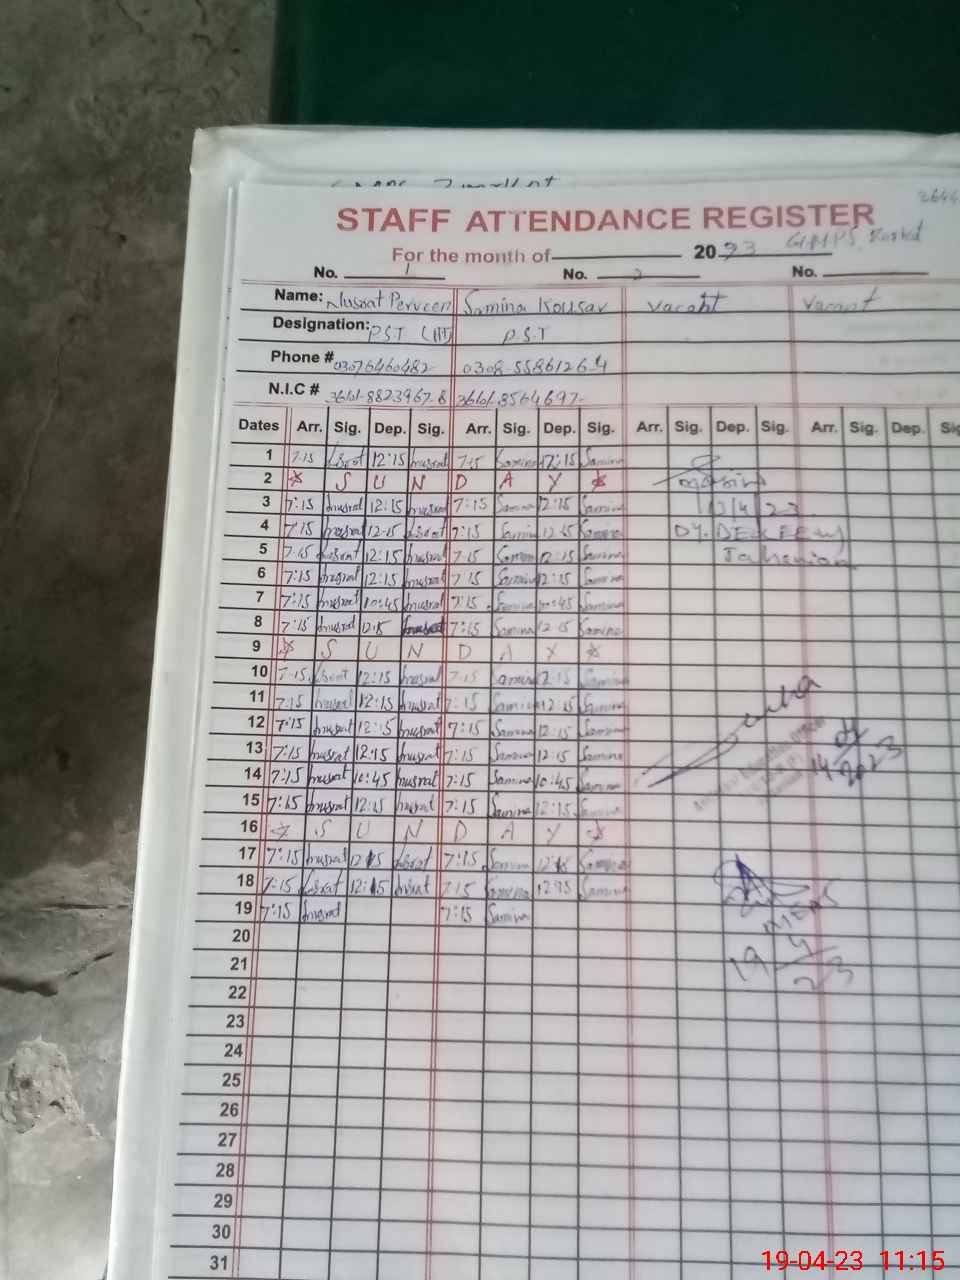 STAFF ATTENDANCE REGISTER
For the month of 2023 GMPS
No. 1 No. 2 No.
Name: Nusrat Perveen Samina Kousar vacant vacant
Designation: PST PST
Phone # 03076460482 0308-5586126
N.I.C #
Dates Arr. Sig. Dep. Sig. Arr. Sig. Dep. Sig. Arr. Sig. Dep. Sig. Arr. Sig. Dep. Sig
1 7:15 nusrat 12:15 nusrat 7:15 Samina 12:15 Samina
2 S U N D A Y
3 7:15 nusrat 12:15 nusrat 7:15 Samina 12:15 Samina
4 7:15 nusrat 12:15 nusrat 7:15 Samina 12:15 Samina
5 7:15 nusrat 12:15 nusrat 7:15 Samina 12:15 Samina
6 7:15 nusrat 12:15 nusrat 7:15 Samina 12:15 Samina
7 7:15 nusrat 10:45 nusrat 7:15 Samina 10:45 Samina
8 7:15 nusrat 12:15 nusrat 7:15 Samina 12:15 Samina
9 S U N D A Y
10 7:15 nusrat 12:15 nusrat 7:15 Samina 12:15 Samina
11 7:15 nusrat 12:15 nusrat 7:15 Samina 12:15 Samina
12 7:15 nusrat 12:15 nusrat 7:15 Samina 12:15 Samina
13 7:15 nusrat 12:15 nusrat 7:15 Samina 12:15 Samina
14 7:15 nusrat 10:45 nusrat 7:15 Samina 10:45 Samina
14
2023
15 7:15 nusrat 12:15 nusrat 7:15 Samina 12:15 Samina
16 S U N D A Y
17 7:15 nusrat 12:15 nusrat 7:15 Samina 12:15 Samina
18 7:15 nusrat 12:15 nusrat 7:15 Samina 12:15 Samina
19 7:15 nusrat 7:15 Samina
20
19 4
21
23
22
23
24
25
26
27
28
29
30
31
19-04-23 11:15